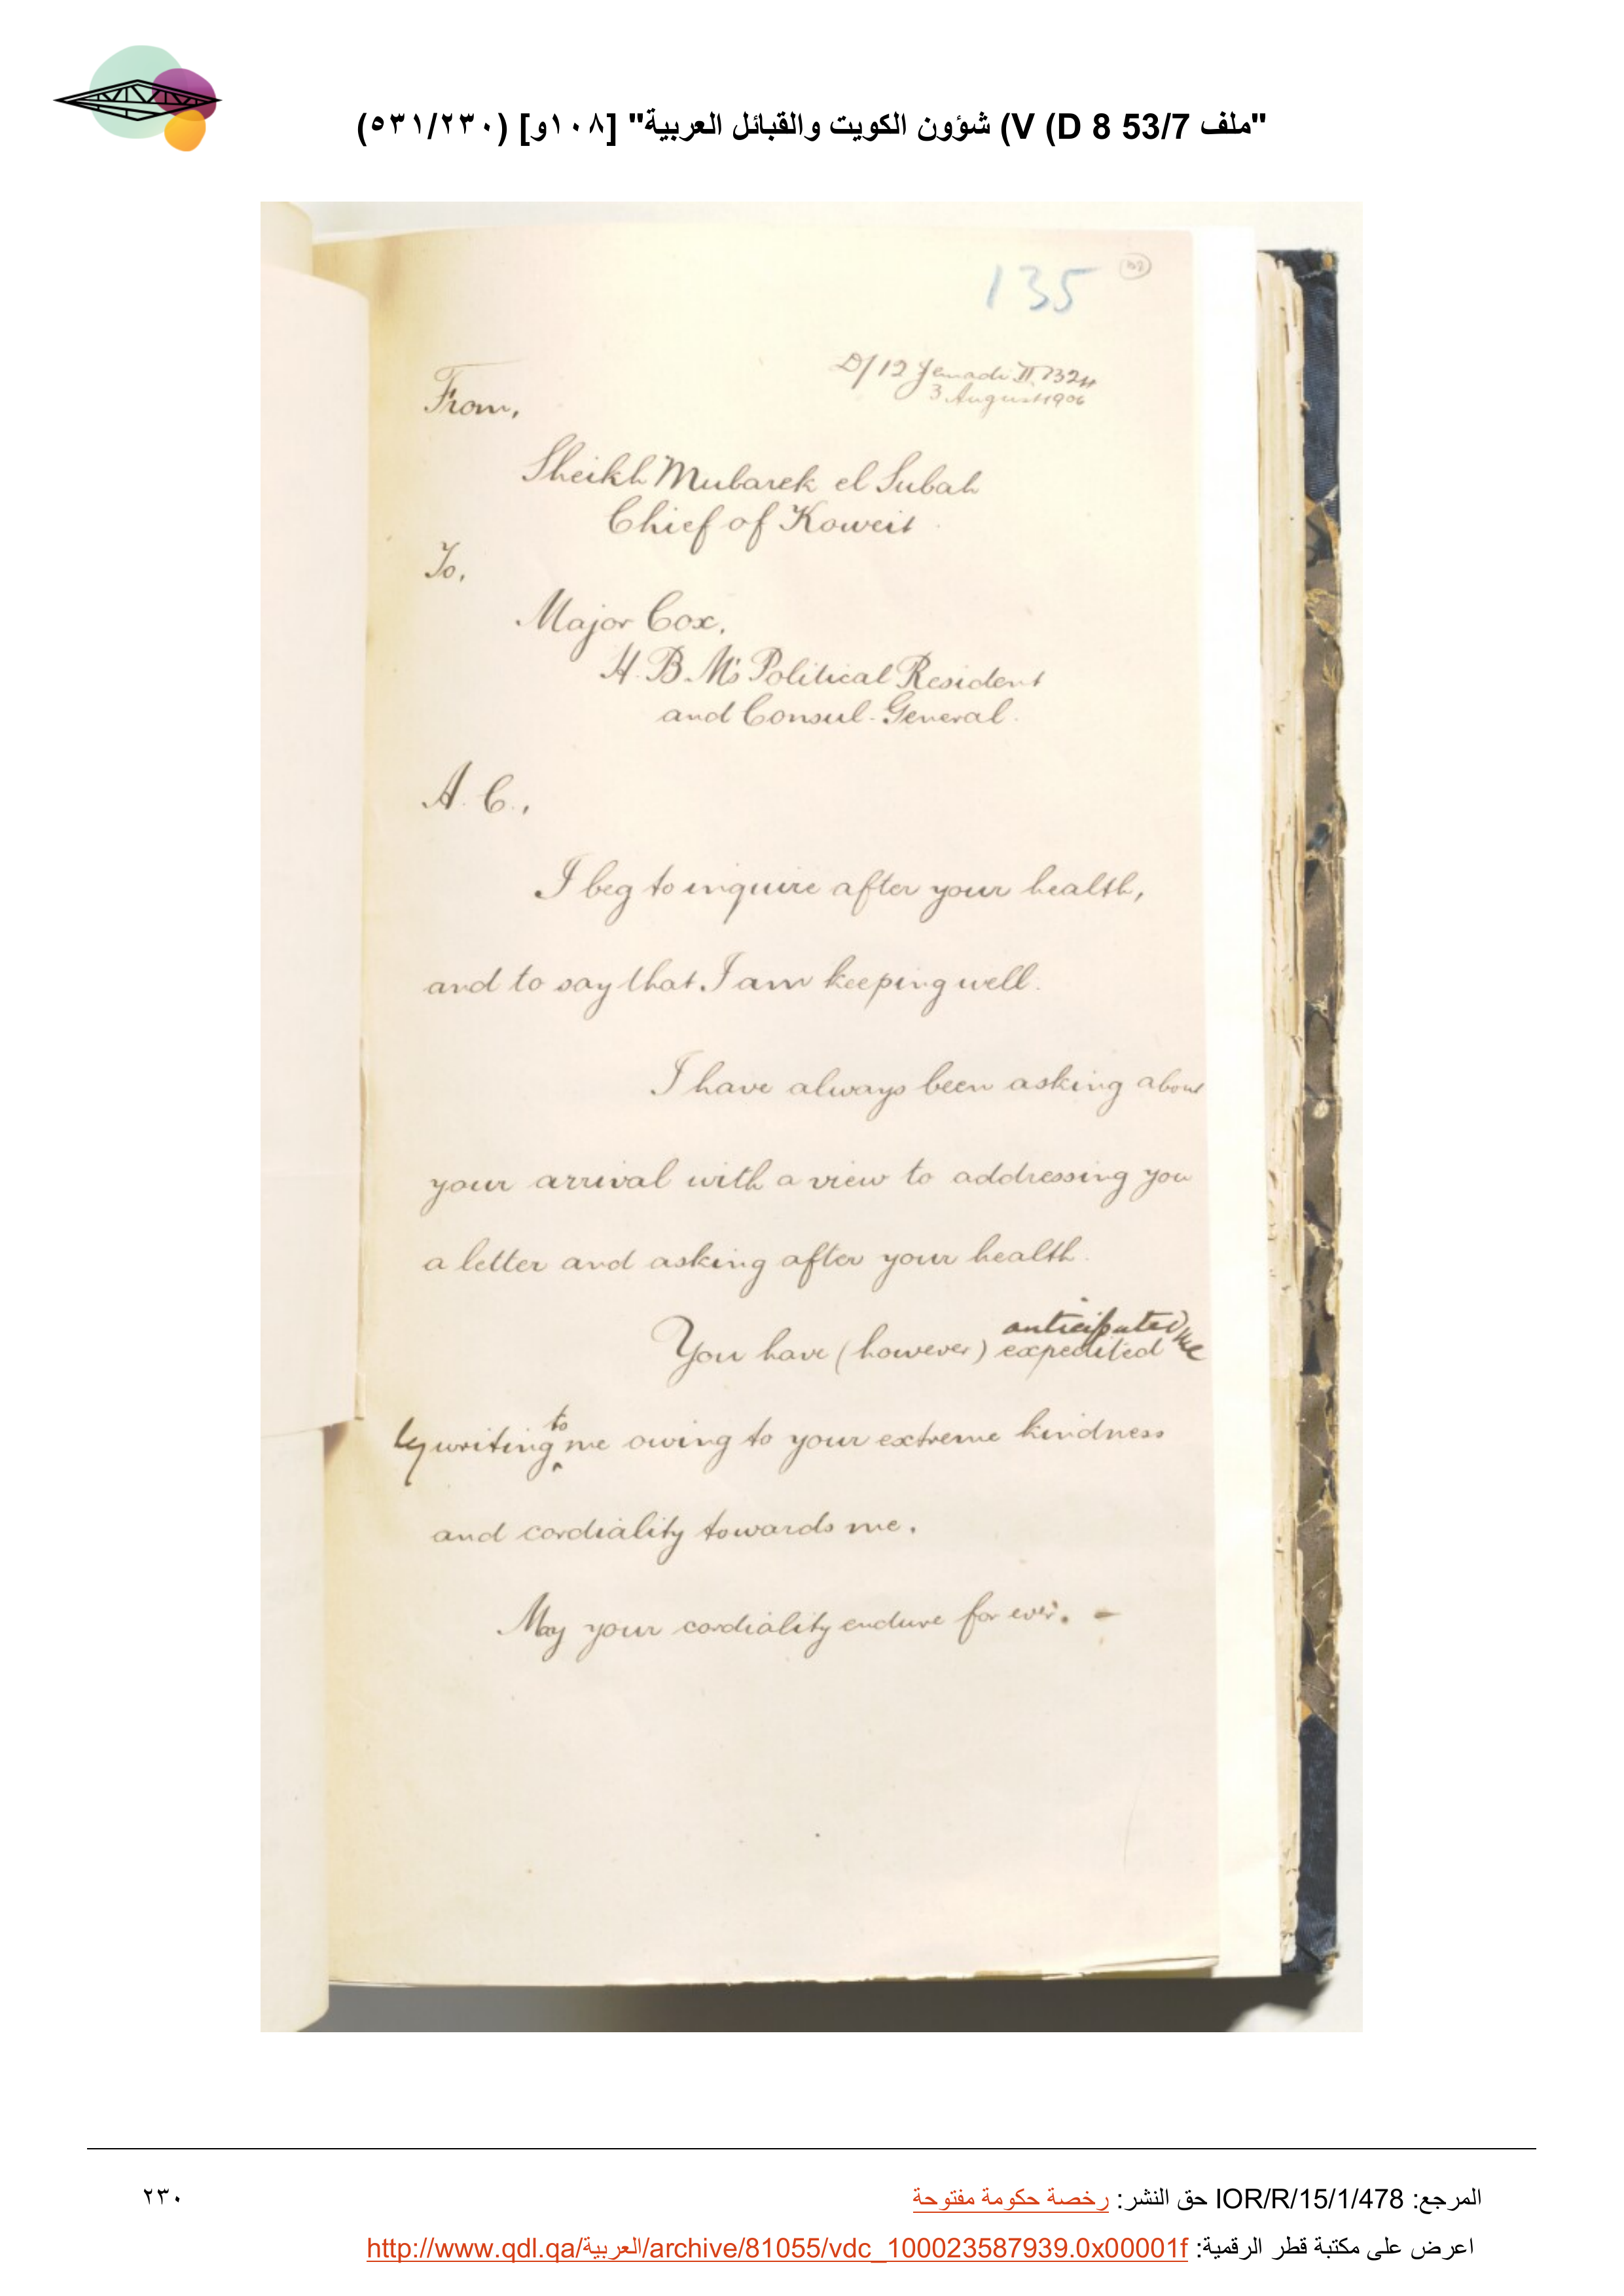 "ملف 53/7 V (D 8) شؤون الكويت والقبائل العربية" [١٠٨و] (٥٣١/٢٣٠)
135
D/12 Jemadi II. 1324
3 August 1906
From,
Sheikh Mubarek el Subah
Chief of Koweit.
To,
Major Cox,
H. B. M's Political Resident
and Consul-General.
A. C.,
I beg to inquire after your health,
and to say that I am keeping well.
I have always been asking about
your arrival with a view to addressing you
a letter and asking after your health.
anticipated me
You have (however) expedited
to
by writing me owing to your extreme kindness
and cordiality towards me.
May your cordiality endure for ever. –
المرجع: IOR/R/15/1/478 حق النشر: رخصة حكومة مفتوحة
٢٣٠
اعرض على مكتبة قطر الرقمية: http://www.qdl.qa/العربية/archive/81055/vdc_100023587939.0x00001f